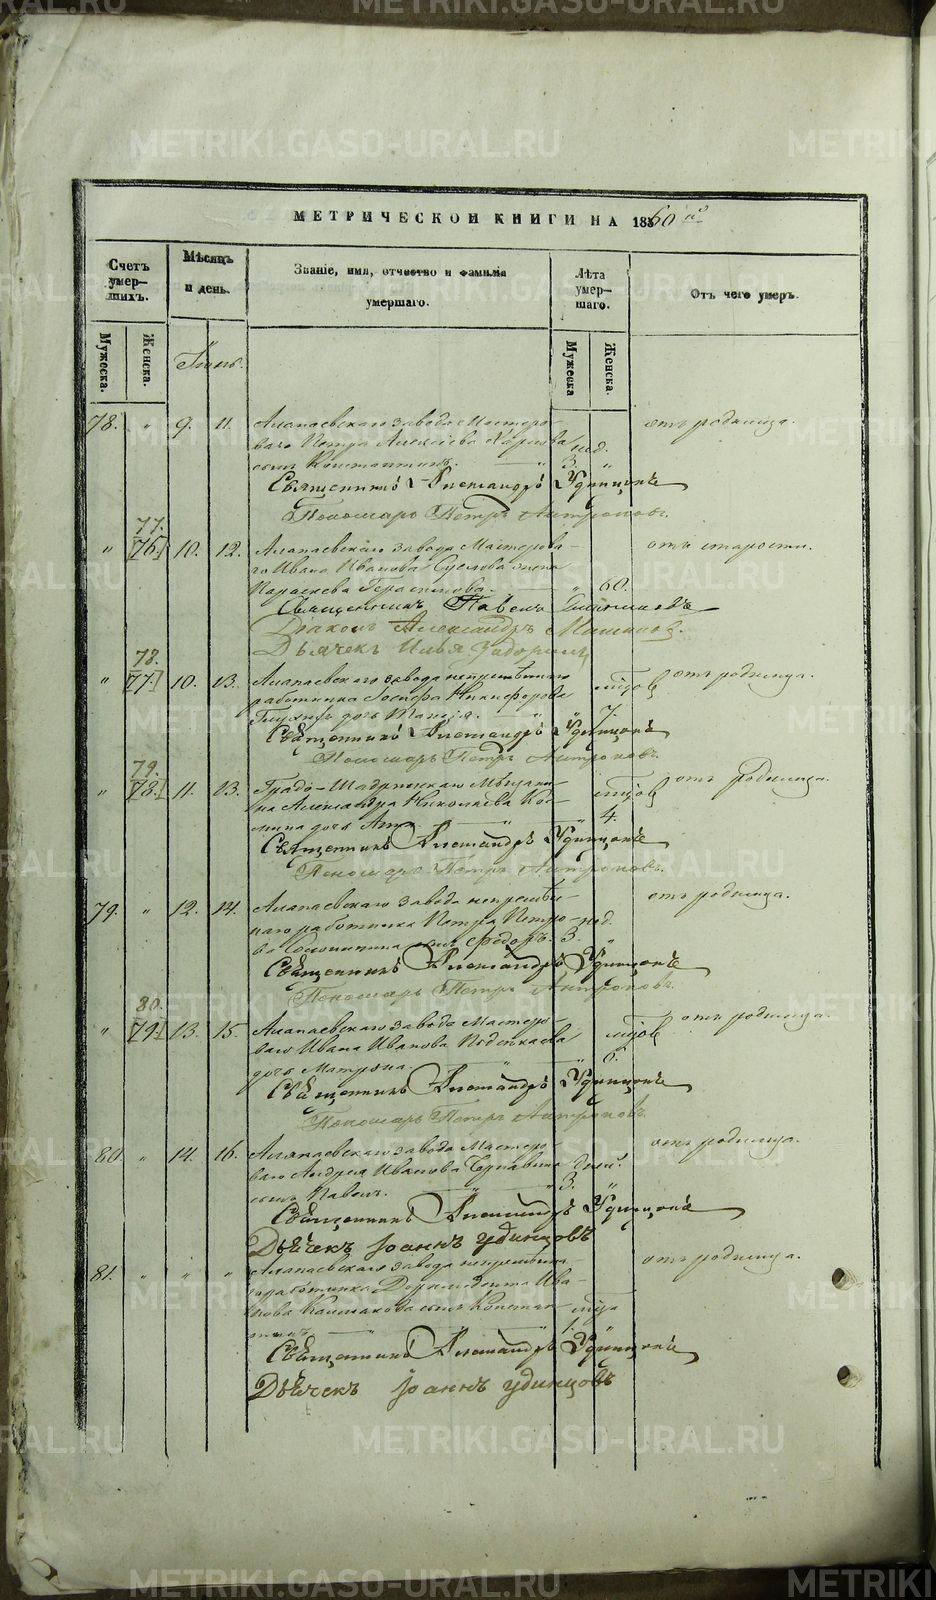 METRIKI.GASO-URAL.RU
МЕТРИЧЕСКОЙ КНИГИ НА 1860 й
Счетъ умер-шихъ.
Мѣсяцъ и день.
Званіе, имя, отчество и фамилія умершаго.
Лѣта умер-шаго.
Отъ чего умеръ.
Мужеска.
Женска.
Мужеска
Женска.
78. " 9. 11. Алапаевскаго завода Мастеро-
ваго Петра Алексѣева
нед.
отъ родимца.
сынъ Константинъ. 3. "
Священникъ Александръ Удинцовъ
Пономарь Петръ Антроповъ.
77.
" 76. 10. 12. Алапаевскаго завода Мастерова-
отъ старости.
го Ивана Иванова Суслова жена
Параскева Герасимова. " 60.
Священникъ Павелъ
Діаконъ Александръ
Дьячекъ Илья
78.
" 77. 10. 13. Алапаевскаго завода непремѣннаго
отъ родимца.
работника Іосифа Никифорова
дочь " 7.
Священникъ Александръ Удинцовъ
Пономарь Петръ Антроповъ.
79.
" 78. 11. 13. Градо-Шадринскаго Мѣщани-
отъ родимца.
на Александра Николаева
дочь Анна " 4.
Священникъ Александръ Удинцовъ
Пономарь Петръ Антроповъ.
79. " 12. 14. Алапаевскаго завода непремѣн-
отъ родимца.
наго работника Петра Петро-
нед.
ва сынъ Ѳедоръ. 3. "
Священникъ Александръ Удинцовъ
Пономарь Петръ Антроповъ.
80.
" 79. 13. 15. Алапаевскаго завода Мастеро-
отъ родимца.
ваго Ивана Иванова
дочь Матрона " 6.
Священникъ Александръ Удинцовъ
Пономарь Петръ Антроповъ.
80. " 14. 16. Алапаевскаго завода Мастеро-
отъ родимца.
ваго Андрея Иванова
дней.
сынъ Павелъ. 3. "
Священникъ Александръ Удинцовъ
Дьячекъ Іоаннъ Удинцовъ
81. " " " Алапаевскаго завода непремѣнна-
отъ родимца.
го работника Ива-
нова сынъ Констан-
тинъ 1. "
Священникъ Александръ Удинцовъ
Дьячекъ Іоаннъ Удинцовъ